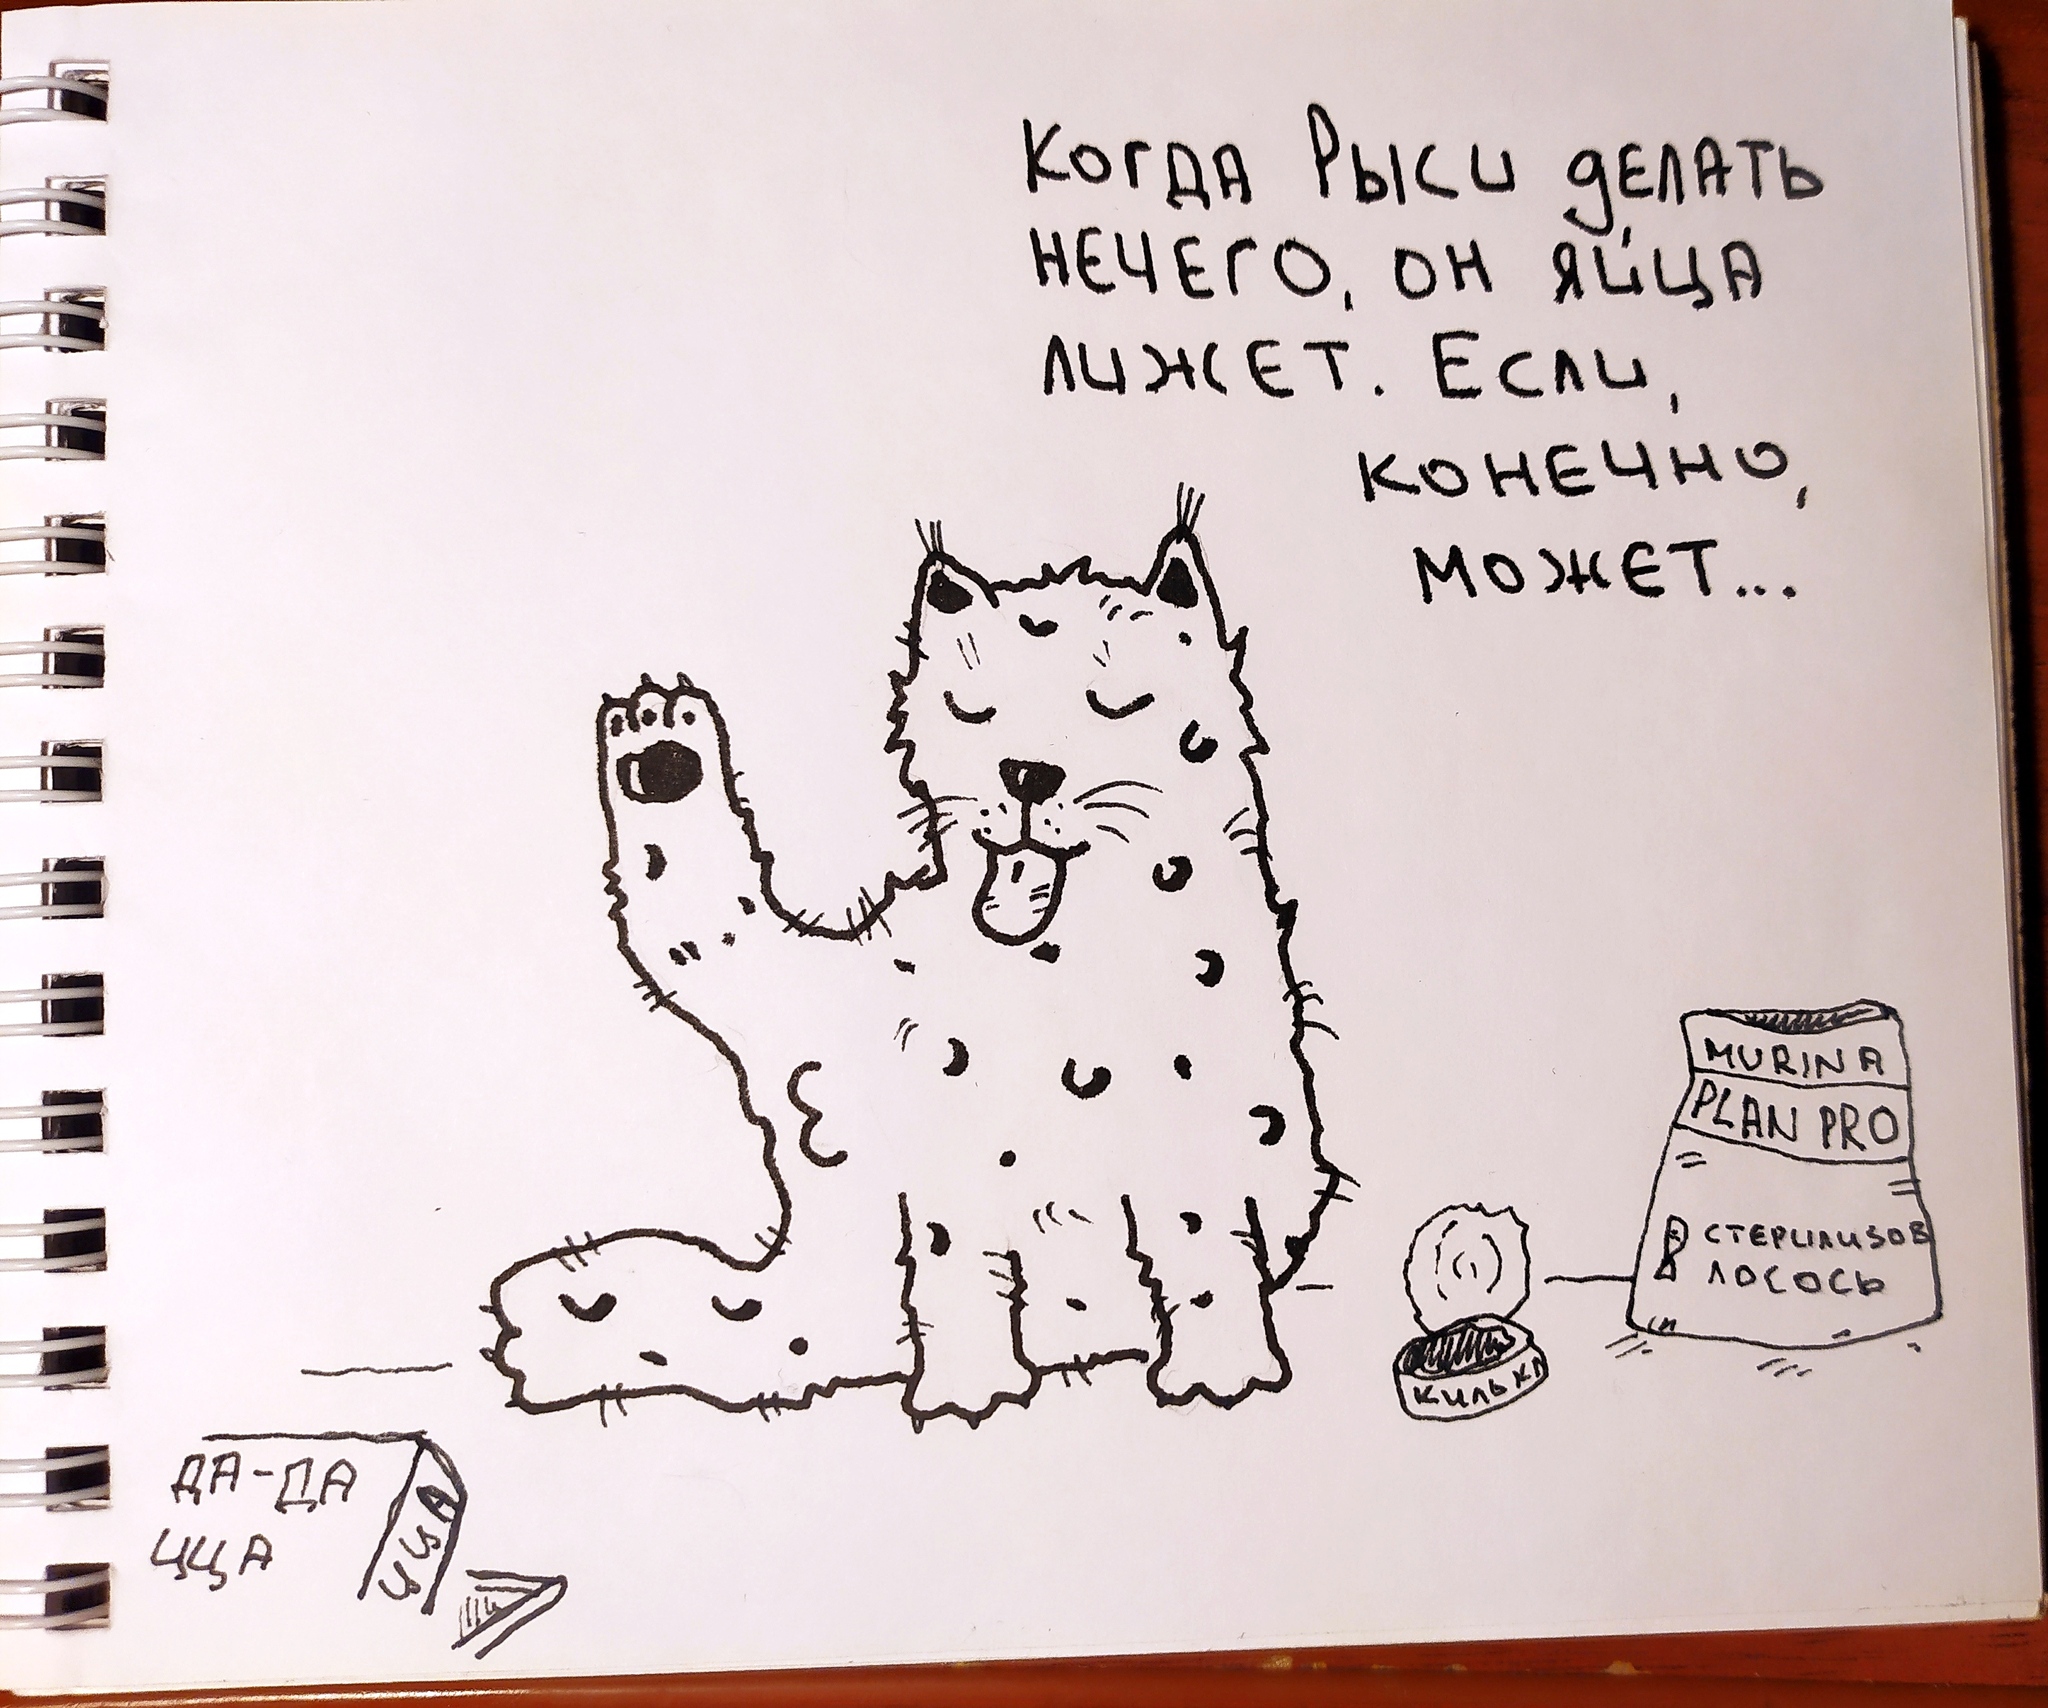 Когда Рыси делать
нечего, он яйца
лижет. Если,
конечно,
может...
MURINA
PLAN PRO
ДЛЯ СТЕРИЛИЗОВ
ЛОСОСЬ
КИЛЬКА
ДА-ДА
ЦЦА
ЦЦА